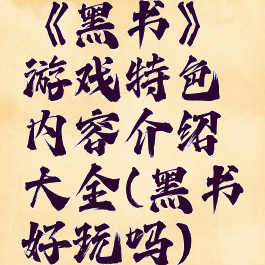 《黑书》
游戏特色
内容介绍
大全(黑书
好玩吗)